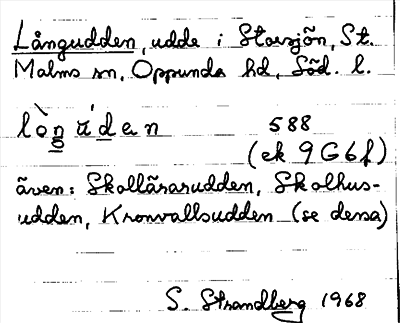 Långudden, udde i Storsjön, St.
Malms sn, Oppunda hd, Söd. l.
lòŋ údan 588
(ek 9G6f)
även: Skollärarudden, Skolhus-
udden, Kronvallsudden (se dessa)
S. Strandberg 1968